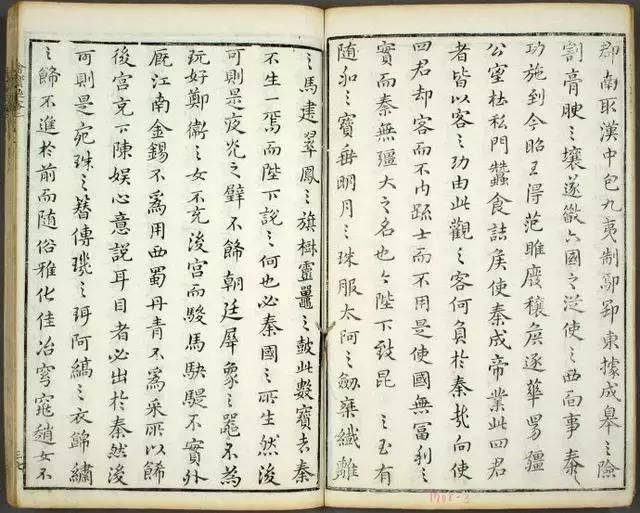 郡南取漢中包九夷制鄢郢東據成皋之險
割膏腴之壤遂散六國之從使之西向事秦
功施到今昭王得范雎廢穰侯逐華彊
公室杜私門蠶食諸侯使秦成帝業此四君
者皆以客之功由此觀之客何負於秦哉向
四君却客而不内疏士而不用是使國無冨利之
實而秦無彊大之名也今陛下致昆 之玉有
随和之寶垂明月之珠服太阿之劒乘纖離
之馬建翠鳳之旗樹靈鼉之鼓此數寶者秦
不生一焉而陛下說之何也必秦國之所生然後
可則是夜光之璧不飾朝廷犀象之器不為
玩好鄭衛之女不充後宮而駿馬駃騠不實外
廐江南金錫不為用西蜀丹青不為采所以飾
後宮充下陳娛心意說耳目者必出於秦然後
可則是宛珠之簪傅璣之珥阿縞之衣錦繡
之飾不進於前而随俗雅化佳冶窈窕趙女不